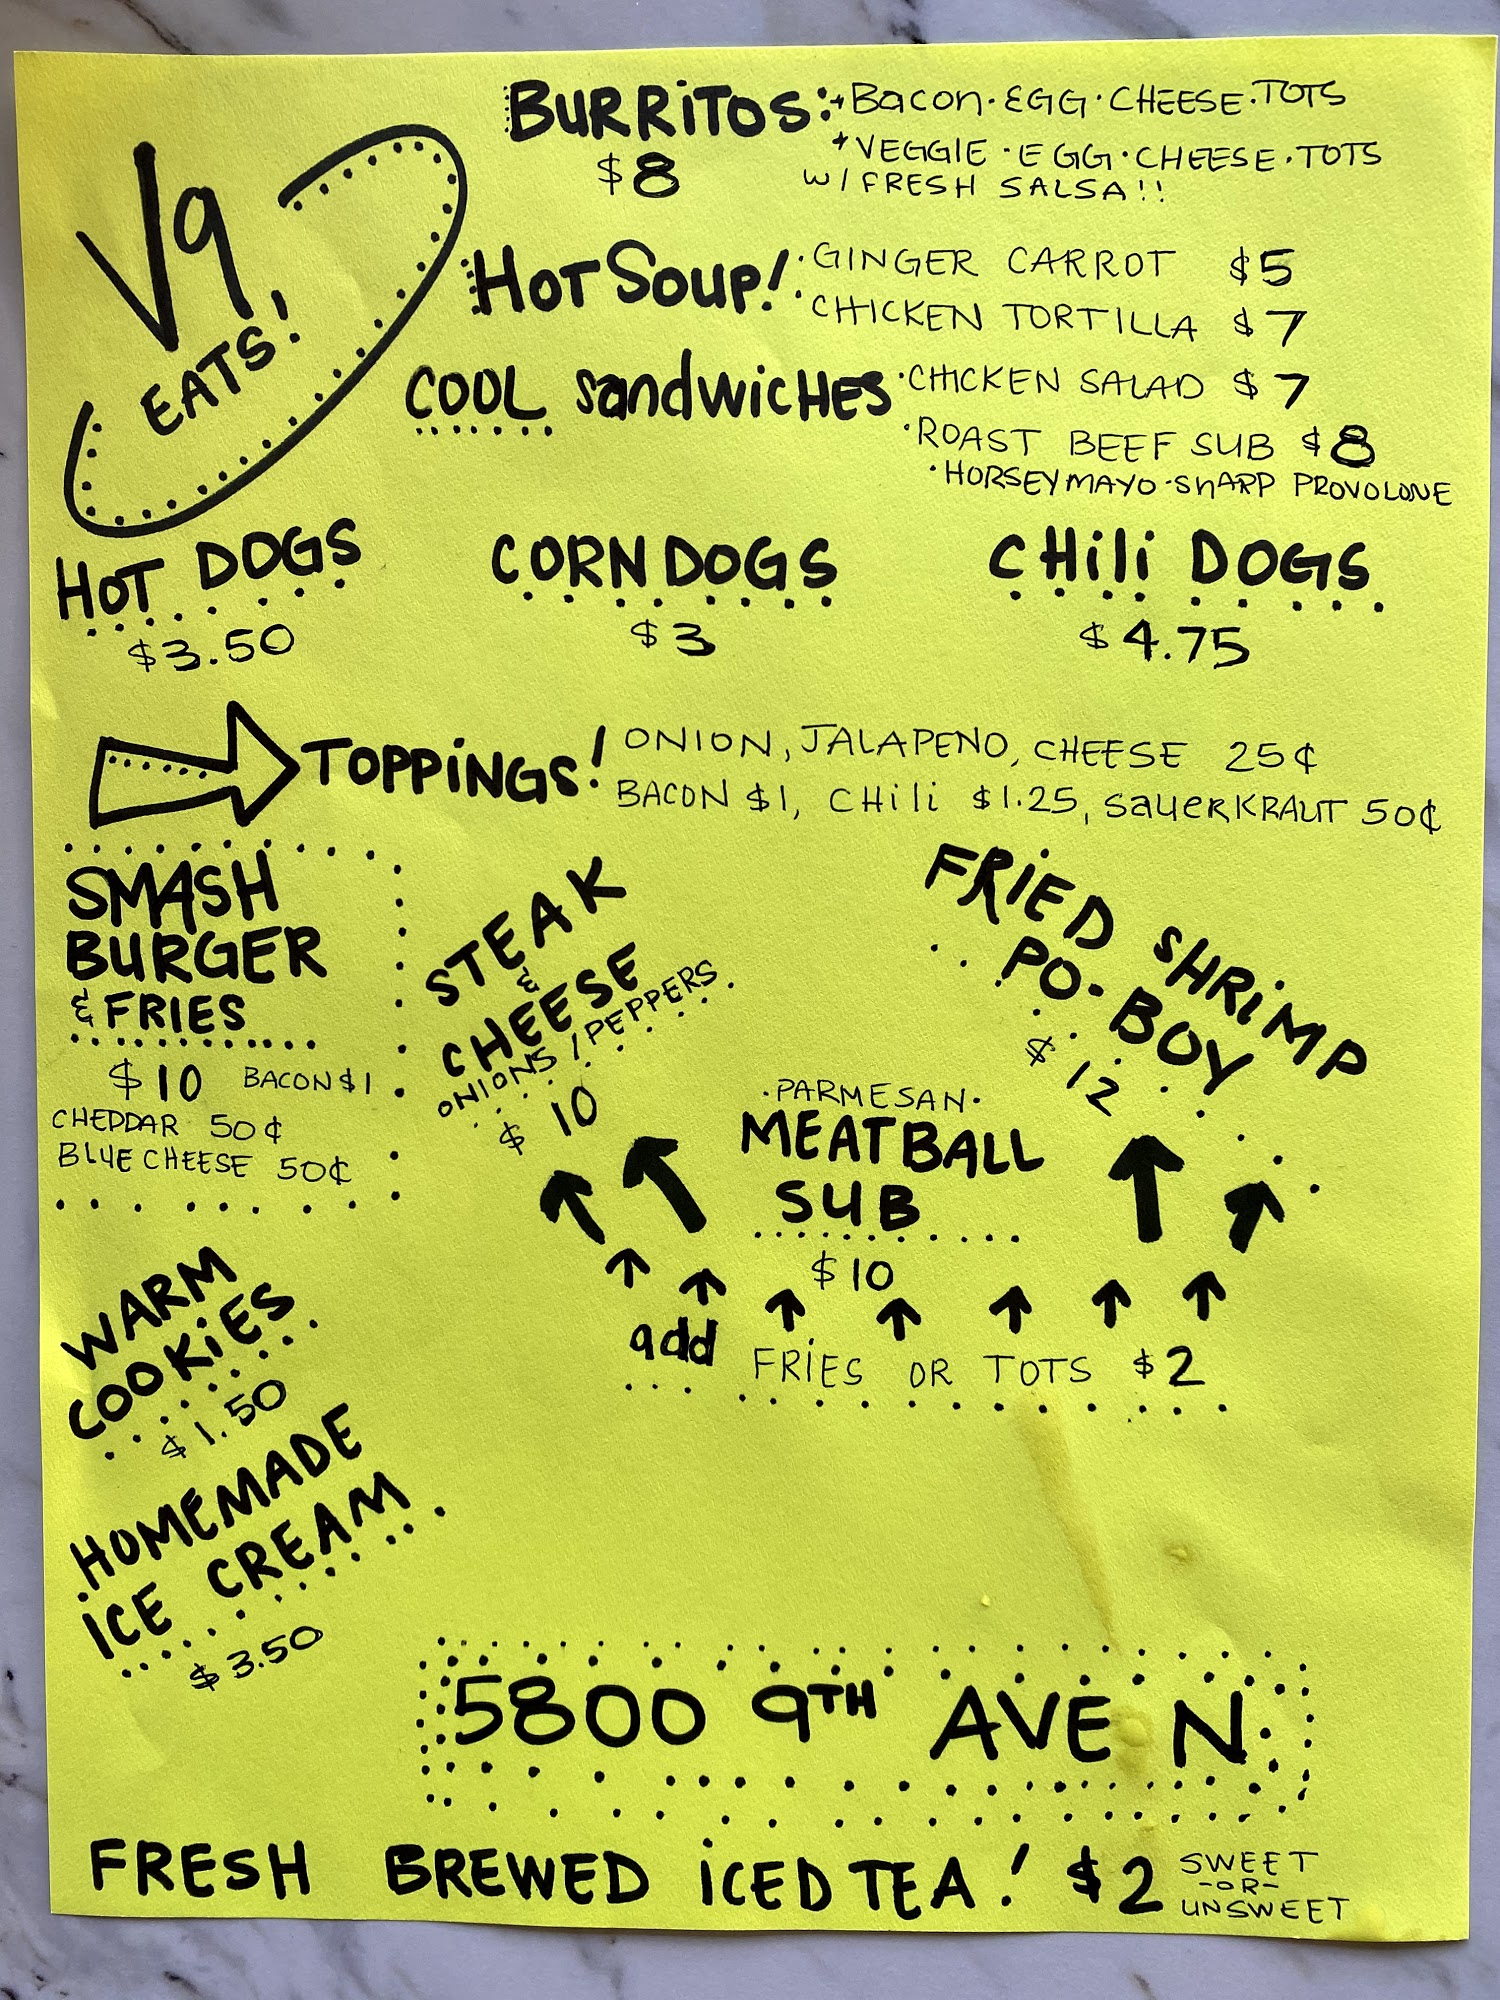 V9
EATS!
BURRiTOS:
$8
+Bacon·EGG·CHEESE·TOTS
+VEGGIE·EGG·CHEESE·TOTS
W/FRESH SALSA!!
HOT SOUP!
·GINGER CARROT $5
·CHICKEN TORTILLA $7
COOL SandwicHES
·CHICKEN SALAD $7
·ROAST BEEF SUB $8
·HORSEYMAYO·SHARP PROVOLONE
HOT DOGS
$3.50
CORN DOGS
$3
CHili DOGS
$4.75
TOPPiNGS!
ONION, JALAPENO, CHEESE 25¢
BACON $1, CHili $1.25, SAUERKRAUT 50¢
SMASH
BURGER
& FRIES
$10 BACON $1
CHEDDAR 50¢
BLUE CHEESE 50¢
STEAK
&
CHEESE
ONIONS/PEPPERS
$10
·PARMESAN·
MEATBALL
SUB
$10
FRiED SHRiMP
PO-BOY
$12
add FRiES OR TOTS $2
WARM
COOKiES
$1.50
HOMEMADE
ICE CREAM
$3.50
5800 9TH AVE N
FRESH BREWED iCED TEA! $2
SWEET
-OR-
UNSWEET